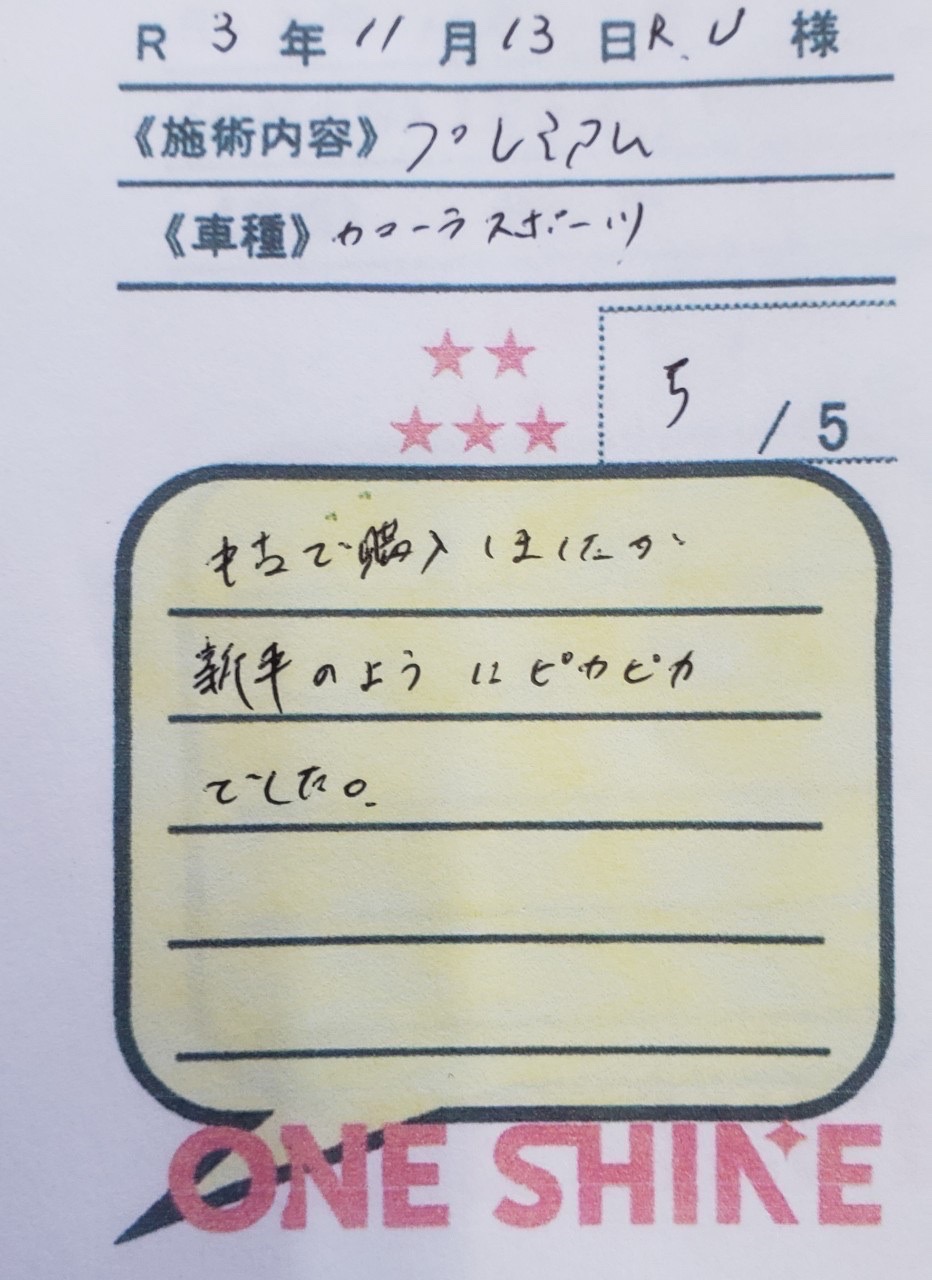 R 3 年 11 月 13 日 R.U 様
《施術内容》プレミアム
《車種》カローラスポーツ
★★
★★★
5 / 5
中古で購入しましたが
新車のようにピカピカ
でした。
ONE SHINE